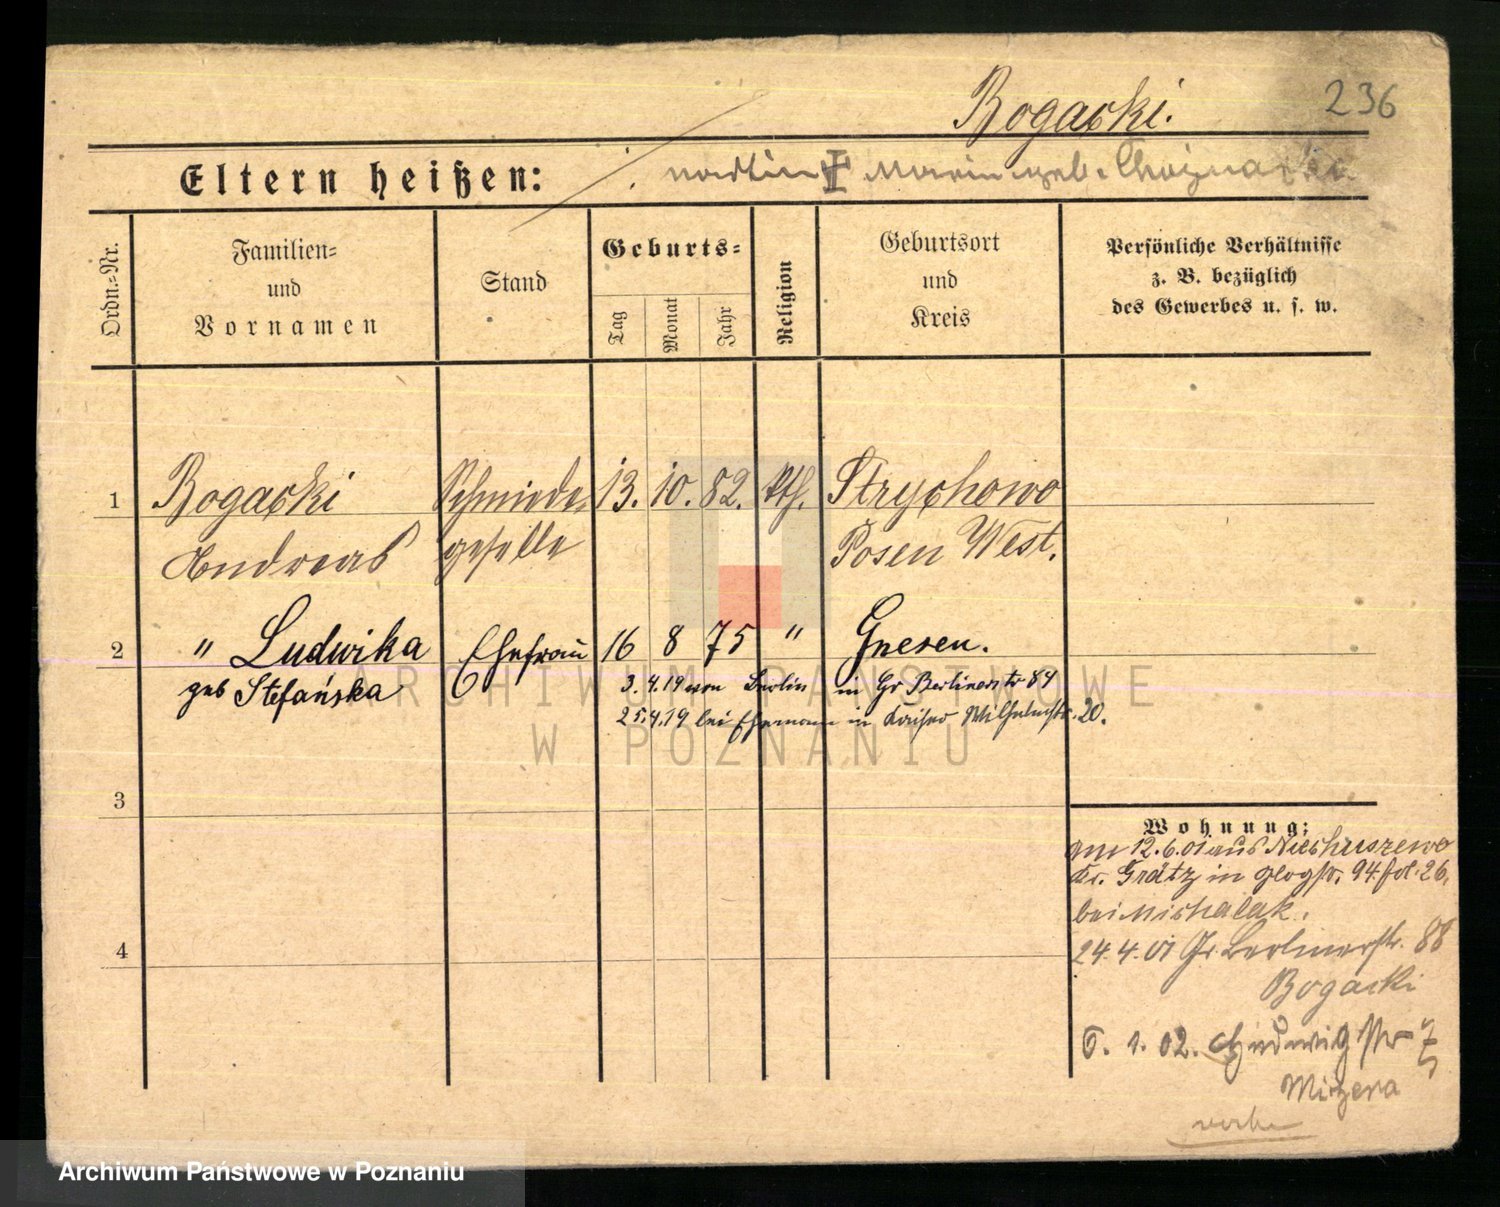 Bogacki.
236
Eltern heißen: Martin + Maria geb. Chojnacka
Ordn.-Nr.
Familien-
und
Vornamen
Stand
Geburts-
Tag
Monat
Jahr
Religion
Geburtsort
und
Kreis
Persönliche Verhältnisse
z. B. bezüglich
des Gewerbes u. s. w.
1 Bogacki Schmiede- 13. 10. 82. kth. Strychowo
Andreas geselle Posen West.
2 " Ludwika Ehefrau 16 8 75 " Gnesen.
geb Stefańska
3.4.19 von Berlin in Gr Berlinerstr 84
25.4.19 bei Ehemann in Kaiser Wilhelmstr. 20.
3
Wohnung:
am 12.6.01 aus
Kr. Grätz in Glogstr. 94 fol. 26.
bei Michalak.
4
24.4.01 Gr. Berlinerstr. 88
Bogacki
6. 1. 02. Ludwigstr 7
Mirzera
ARCHIWUM PAŃSTWOWE
W POZNANIU
Archiwum Państwowe w Poznaniu